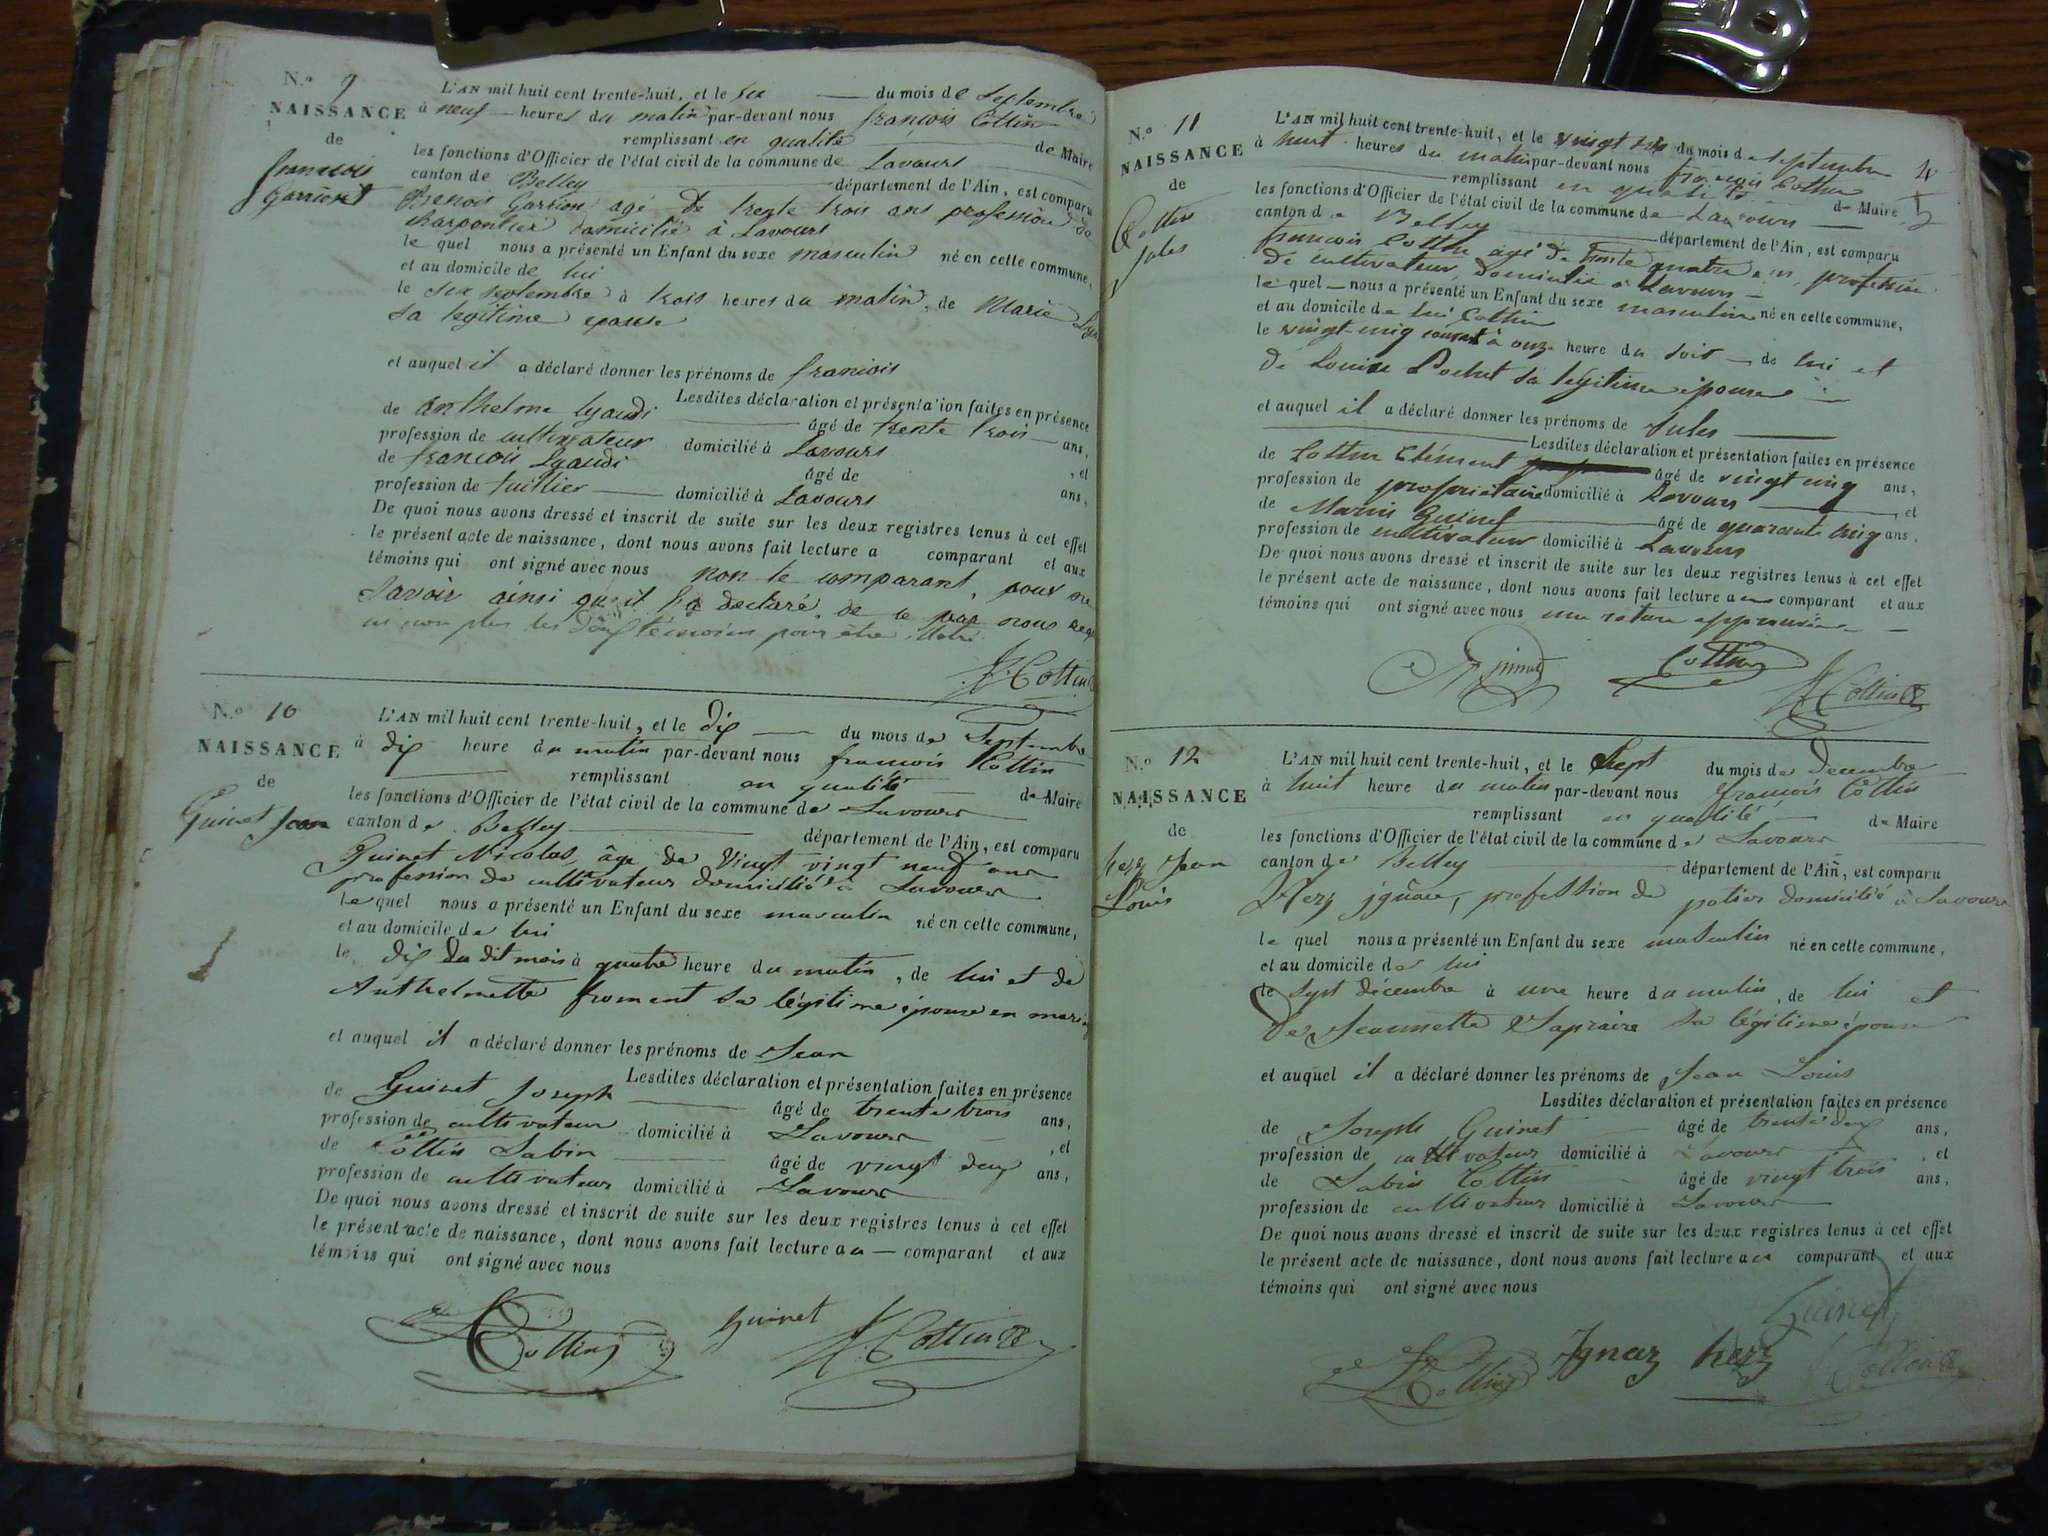 N.º 9
NAISSANCE
de
francois
Garriont
L'AN mil huit cent trente-huit, et le six du mois de Septembre
à neuf heures du matin par-devant nous françois Cottin
remplissant en qualité de Maire
les fonctions d'Officier de l'état civil de la commune de Lavours
canton de Belley département de l'Ain, est comparu
Benois Garrion agé de trente trois ans profession de
charpontier domicilié à Lavours
le quel nous a présenté un Enfant du sexe masculin né en cette commune,
et au domicile de lui
le six septembre à trois heures du matin, de Marie
sa legitime epouse
et auquel il a déclaré donner les prénoms de francois
Lesdites déclaration et présentation faites en présence
de Anthelme Lyaudi âgé de trente trois ans,
profession de cultivateur domicilié à Lavours , et
de francois Lyaudi âgé de ans,
profession de tuillier domicilié à Lavours
De quoi nous avons dressé et inscrit de suite sur les deux registres tenus à cet effet
le présent acte de naissance, dont nous avons fait lecture a comparant et aux
témoins qui ont signé avec nous non le comparant, pour ne
savoir ainsi qu'il l'a declaré, de ce par nous
non plus les deux témoins pour être illetré
f. Cottin
N.º 10
NAISSANCE
de
Guinet Jean
L'AN mil huit cent trente-huit, et le dix du mois de Septembre
à dix heure du matin par-devant nous francois Cottin
remplissant en qualité de Maire
les fonctions d'Officier de l'état civil de la commune de Lavours
canton de Belley département de l'Ain, est comparu
Guinet Nicolas, âgé de Vingt vingt neuf ans
profession de cultivateur domicilié à Lavours
le quel nous a présenté un Enfant du sexe masculin né en cette commune,
et au domicile de lui
le dix du dit mois à quatre heure du matin, de lui et de
Anthelmette froment sa légitime épouse en
et auquel il a déclaré donner les prénoms de Jean
Lesdites déclaration et présentation faites en présence
de Guinet Joseph âgé de trente trois ans,
profession de cultivateur domicilié à Lavours , et
de Cottin Sabin âgé de vingt deux ans,
profession de cultivateur domicilié à Lavours
De quoi nous avons dressé et inscrit de suite sur les deux registres tenus à cet effet
le présent acte de naissance, dont nous avons fait lecture au comparant et aux
témoins qui ont signé avec nous
Cottin Guinet f. Cottin
N.º 11
NAISSANCE
de
Cottin
Jules
L'AN mil huit cent trente-huit, et le vingt six du mois de septembre
à huit heures du matin par-devant nous françois Cottin
remplissant en qualité de Maire
les fonctions d'Officier de l'état civil de la commune de Lavours
canton de Belley département de l'Ain, est comparu
francois Cottin agé de trente quatre ans, profession
de cultivateur, domicilié à Lavours
le quel nous a présenté un Enfant du sexe masculin né en cette commune,
et au domicile de lui Cottin
le vingt-cinq courant à onze heure du soir de lui et
de Louise Pochet sa légitime épouse
et auquel il a déclaré donner les prénoms de Jules
Lesdites déclaration et présentation faites en présence
de Cottin Clément âgé de vingt cinq ans,
profession de propriétaire domicilié à Lavours , et
de Marin Guinet âgé de quarante cinq ans,
profession de cultivateur domicilié à Lavours
De quoi nous avons dressé et inscrit de suite sur les deux registres tenus à cet effet
le présent acte de naissance, dont nous avons fait lecture au comparant et aux
témoins qui ont signé avec nous une rature approuvée
Cottin f. Cottin
N.º 12
NAISSANCE
de
herz Jean
Louis
L'AN mil huit cent trente-huit, et le Sept du mois de Decembre
à huit heure du matin par-devant nous françois Cottin
remplissant en qualité de Maire
les fonctions d'Officier de l'état civil de la commune de Lavours
canton de Belley département de l'Ain, est comparu
Herz ignace, profession de potier domicilié à Lavours
le quel nous a présenté un Enfant du sexe masculin né en cette commune,
et au domicile de lui
le Sept décembre à une heure du matin, de lui et
de Jeannette Sapraire sa légitime épouse
et auquel il a déclaré donner les prénoms de Jean Louis
Lesdites déclaration et présentation faites en présence
de Joseph Guinet âgé de trente deux ans,
profession de cultivateur domicilié à Lavours , et
de Sabin Cottin âgé de vingt trois ans,
profession de cultivateur domicilié à Lavours
De quoi nous avons dressé et inscrit de suite sur les deux registres tenus à cet effet
le présent acte de naissance, dont nous avons fait lecture au comparant et aux
témoins qui ont signé avec nous
Guinet
Cottin Ignaz herz Cottin